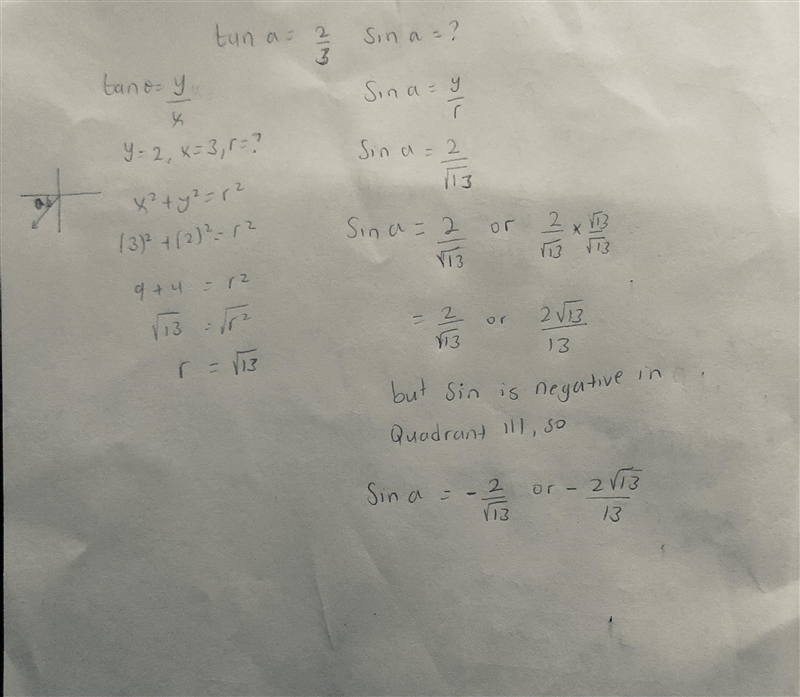 tan a = 2/3 Sin a = ?
tanθ = y/x
y = 2, x = 3, r = ?
x² + y² = r²
(3)² + (2)² = r²
9 + 4 = r²
√13 = √r²
r = √13
a
Sin a = y/r
Sin a = 2/√13
Sin a = 2/√13 or 2/√13 × √13/√13
= 2/√13 or 2√13/13
but Sin is negative in
Quadrant III, so
Sin a = -2/√13 or -2√13/13